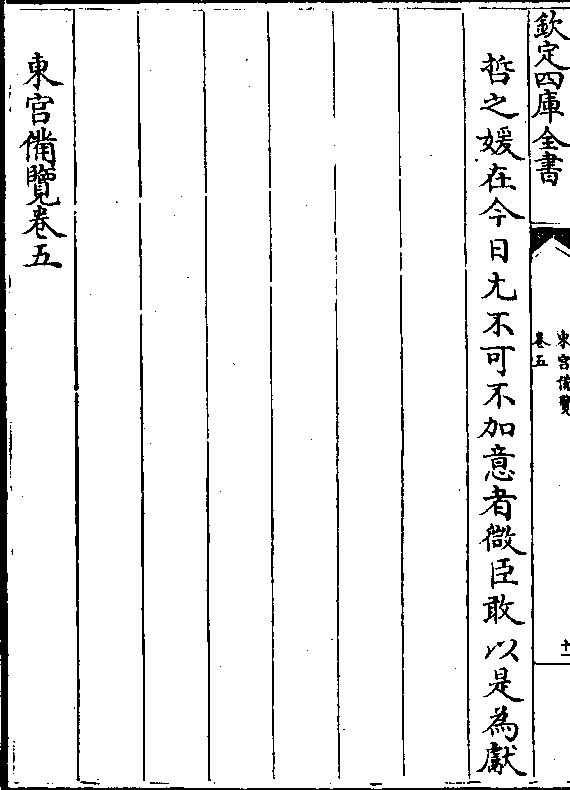 欽定四庫全書
東宮備覽
卷五
十一
哲之媛在今日尤不可不加意者微臣敢以是為獻
東宮備覽卷五